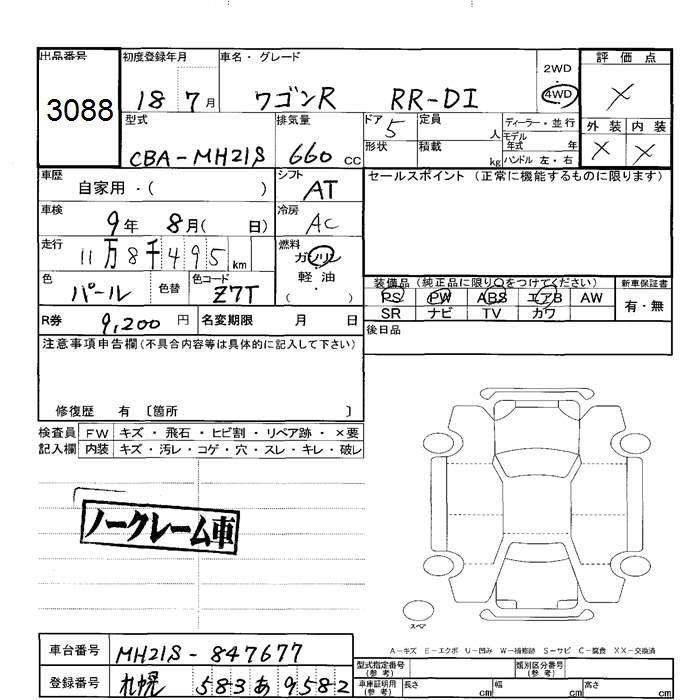 出品番号 初度登録年月 車名・グレード 2WD 評価点
3088 18 7月 ワゴンR RR-DI 4WD ×
型式 排気量 ドア 5 定員 人 ディーラー・並行 外装 内装
CBA-MH21S 660 CC 形状 積載 kg モデル年式 年 ハンドル 左・右 × ×
車歴 シフト セールスポイント (正常に機能するものに限ります)
自家用・( ) AT
車検 冷房
9年 8月( 日) AC
走行 燃料
11万8千495km ガソリン
軽・油
( )
色 パール 色替 色コード Z7T
装備品 (純正品に限り○をつけてください) 新車保証書
PS PW ABS エアB AW 有・無
SR ナビ TV カワ
R券 9,200円 名変期限 月 日 後日品
注意事項申告欄(不具合内容等は具体的に記入して下さい)
修復歴 有 〔箇所 〕
検査員 FW キズ・飛石・ヒビ割・リペア跡・×要
記入欄 内装 キズ・汚レ・コゲ・穴・スレ・キレ・破レ
ノークレーム車
スペア
A-キズ E-エクボ U-凹み W-補修跡 S-サビ C-腐食 XX-交換済
車台番号 MH21S-847677 型式指定番号(参考) 類別区分番号(参考)
登録番号 札幌 583あ9582 車庫証明用(参考) 長さ cm 幅 cm 高さ cm